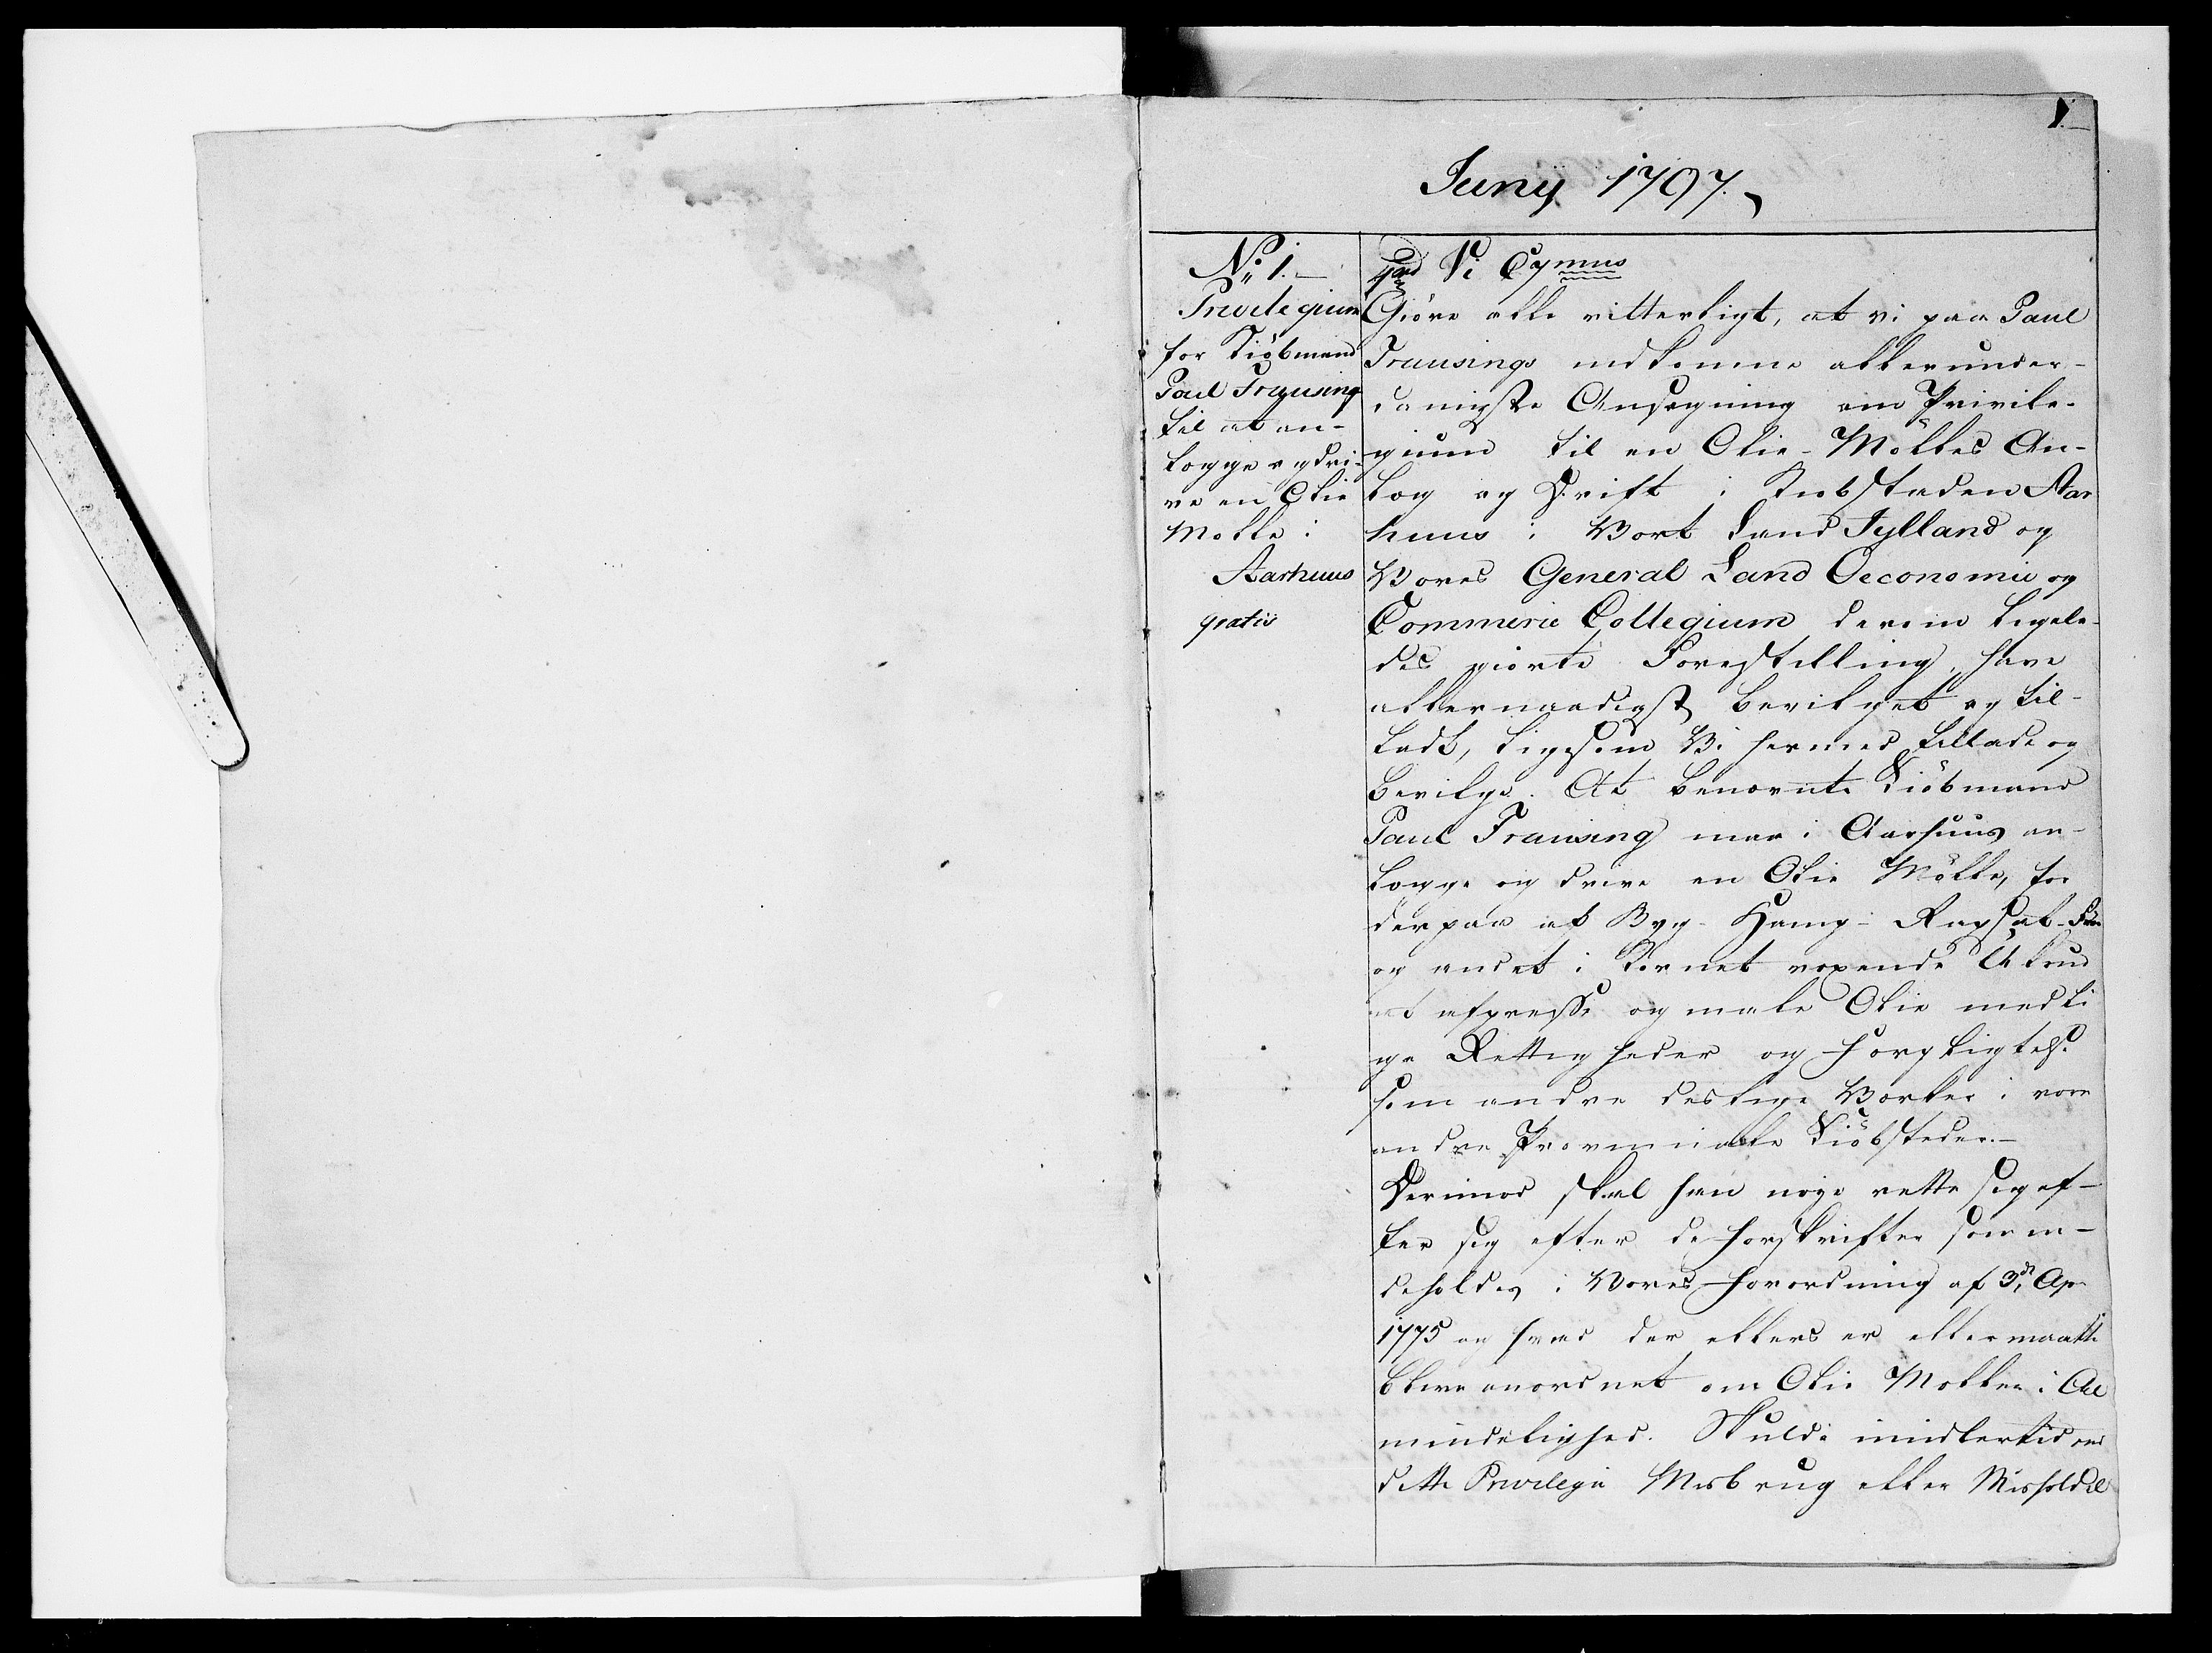 1.
Juny 1797.
No. 1.
Privilegium
for Kiöbmand
Paul Frausing
til at an-
legge og dri-
ve en Olie
Mølle i
Aarhuus
gratis
Vi
Giöre alle vitterligt, at vi paa Paul
Frausings indkomne allerunder-
danigste Ansøgning om Privile-
gium til en Olie-Mölles An-
læg og Drift i Kiøbstaden Aar
huus i Vort Land Jylland og
Vores General Land Oeconomie og
Commerce Collegium derom ligele-
des giorte Forestilling, have
allernaadigst bevilget og til-
ladt, ligesom Vi hermed tillade og
bevilge. At benævnte Kiöbmand
Paul Frausing maa i Aarhuus an-
lægge og drive en Olie Mölle, for
derpaa af Byg- Hamp- Rapsat-
og andet i Kornet voxende Ukrud
at uspresse og male Olie med li
ge Rettigheder og Forpligtelse
som andre deslige Værker i vore
andre Provinciale Kiöbsteder.-
Derimod skal han nøye rette sig ef-
ter sig efter de Forskrifter som in-
deholdes i Vores Forordning af 3de Apr
1775 og hvad der ellers er eller maatte
blive anordnet om Olie Møller i Al
mindelighed. Skulde imidlertid ved
dette Privilegie Misbrug eller Mishold